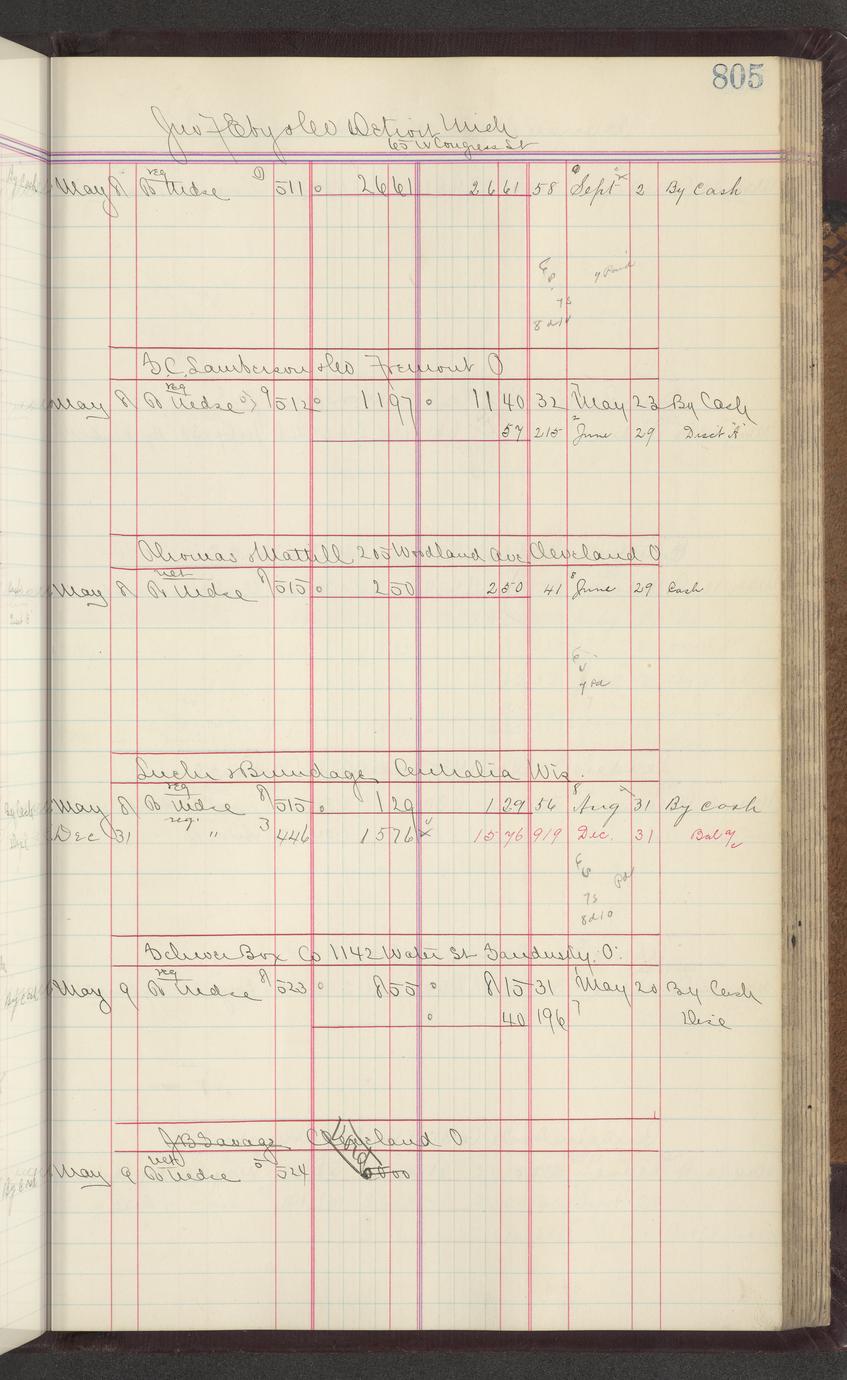 805
Jno F Eby & Co Detroit Mich
65 W Congress St
May 8 reg To Mdse 511 2661 2661 58 Sept 2 By Cash
7 Paid
7s
8d10
S.C. Lamberson & Co Fremont O
May 8 reg To Mdse 9 512 1197 1140 32 May 23 By Cash
57 215 June 29 Disct A
Thomas & Mattill 205 Woodland Ave Cleveland O
May 8 net To Mdse 8 515 250 250 41 June 29 Cash
7 Pd
Brundage Centralia Wis.
May 8 reg To Mdse 8 515 129 129 56 Aug 31 By Cash
Dec 31 reg. " 3 446 1576 1576 919 Dec. 31 Bal
Pd
7s
8d10
Schwer Box Co 1142 Water St Sandusky, O.
May 9 reg To Mdse 8 523 855 815 31 May 20 By Cash
40 196 Disc
J.B. Savage Cleveland O
May 9 net To Mdse 5 524